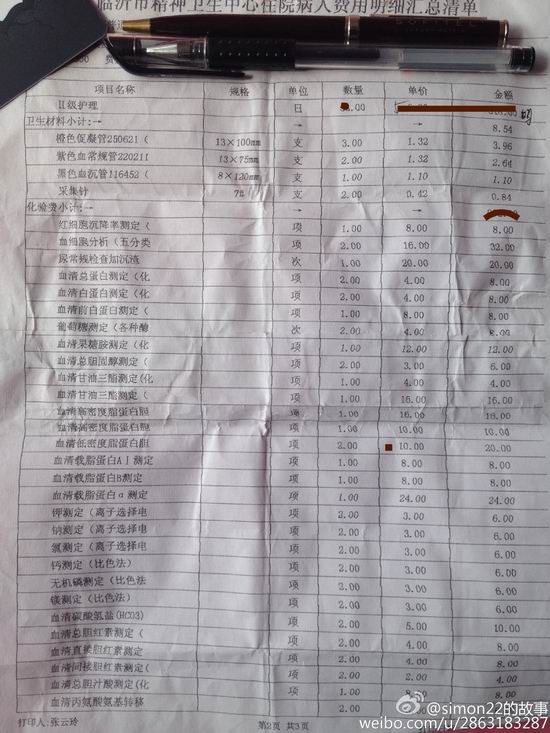 临沂市精神卫生中心住院病人费用明细汇总清单
项目名称 规格 单位 数量 单价 金额
II级护理 日
卫生材料小计:→ → → 8.54
橙色促凝管250621 ( 13×100mm 支 3.00 1.32 3.96
紫色血常规管220211 13×75mm 支 2.00 1.32 2.64
黑色血沉管116452 ( 8×120mm 支 1.00 1.10 1.10
采集针 7# 支 2.00 0.42 0.84
化验费小计:→ → →
红细胞沉降率测定( 项 1.00 8.00 8.00
血细胞分析(五分类 项 2.00 16.00 32.00
尿常规检查加沉渣 次 1.00 20.00 20.00
血清总蛋白测定(化 项 2.00 4.00 8.00
血清白蛋白测定(化 项 2.00 4.00 8.00
血清前白蛋白测定( 项 1.00 8.00 8.00
葡萄糖测定(各种酶 次 2.00 4.00 8.00
血清果糖胺测定(化 项 1.00 12.00 12.00
血清总胆固醇测定( 项 2.00 3.00 6.00
血清甘油三酯测定(化 项 1.00 4.00 4.00
血清甘油三酯测定( 项 1.00 16.00 16.00
血清高密度脂蛋白胆 项 1.00 16.00 16.00
血清高密度脂蛋白胆 项 1.00 10.00 10.00
血清低密度脂蛋白胆 项 2.00 10.00 20.00
血清载脂蛋白AI测定 项 1.00 8.00 8.00
血清载脂蛋白B测定 项 1.00 8.00 8.00
血清载脂蛋白α测定 项 1.00 24.00 24.00
钾测定(离子选择电 项 2.00 3.00 6.00
钠测定(离子选择电 项 2.00 3.00 6.00
氯测定(离子选择电 项 2.00 3.00 6.00
钙测定(比色法) 项 2.00 3.00 6.00
无机磷测定(比色法 项 2.00 3.00 6.00
镁测定(比色法) 项 2.00 3.00 6.00
血清碳酸氢盐(HCO3) 项 2.00 5.00 10.00
血清总胆红素测定( 项 2.00 4.00 8.00
血清直接胆红素测定 项 2.00 4.00 8.00
血清间接胆红素测定( 项 2.00 4.00
血清总胆汁酸测定(化 项
血清丙氨酸氨基转移
打印人:张云玲 第2页 共3页
@simon22的故事
weibo.com/u/2863183287